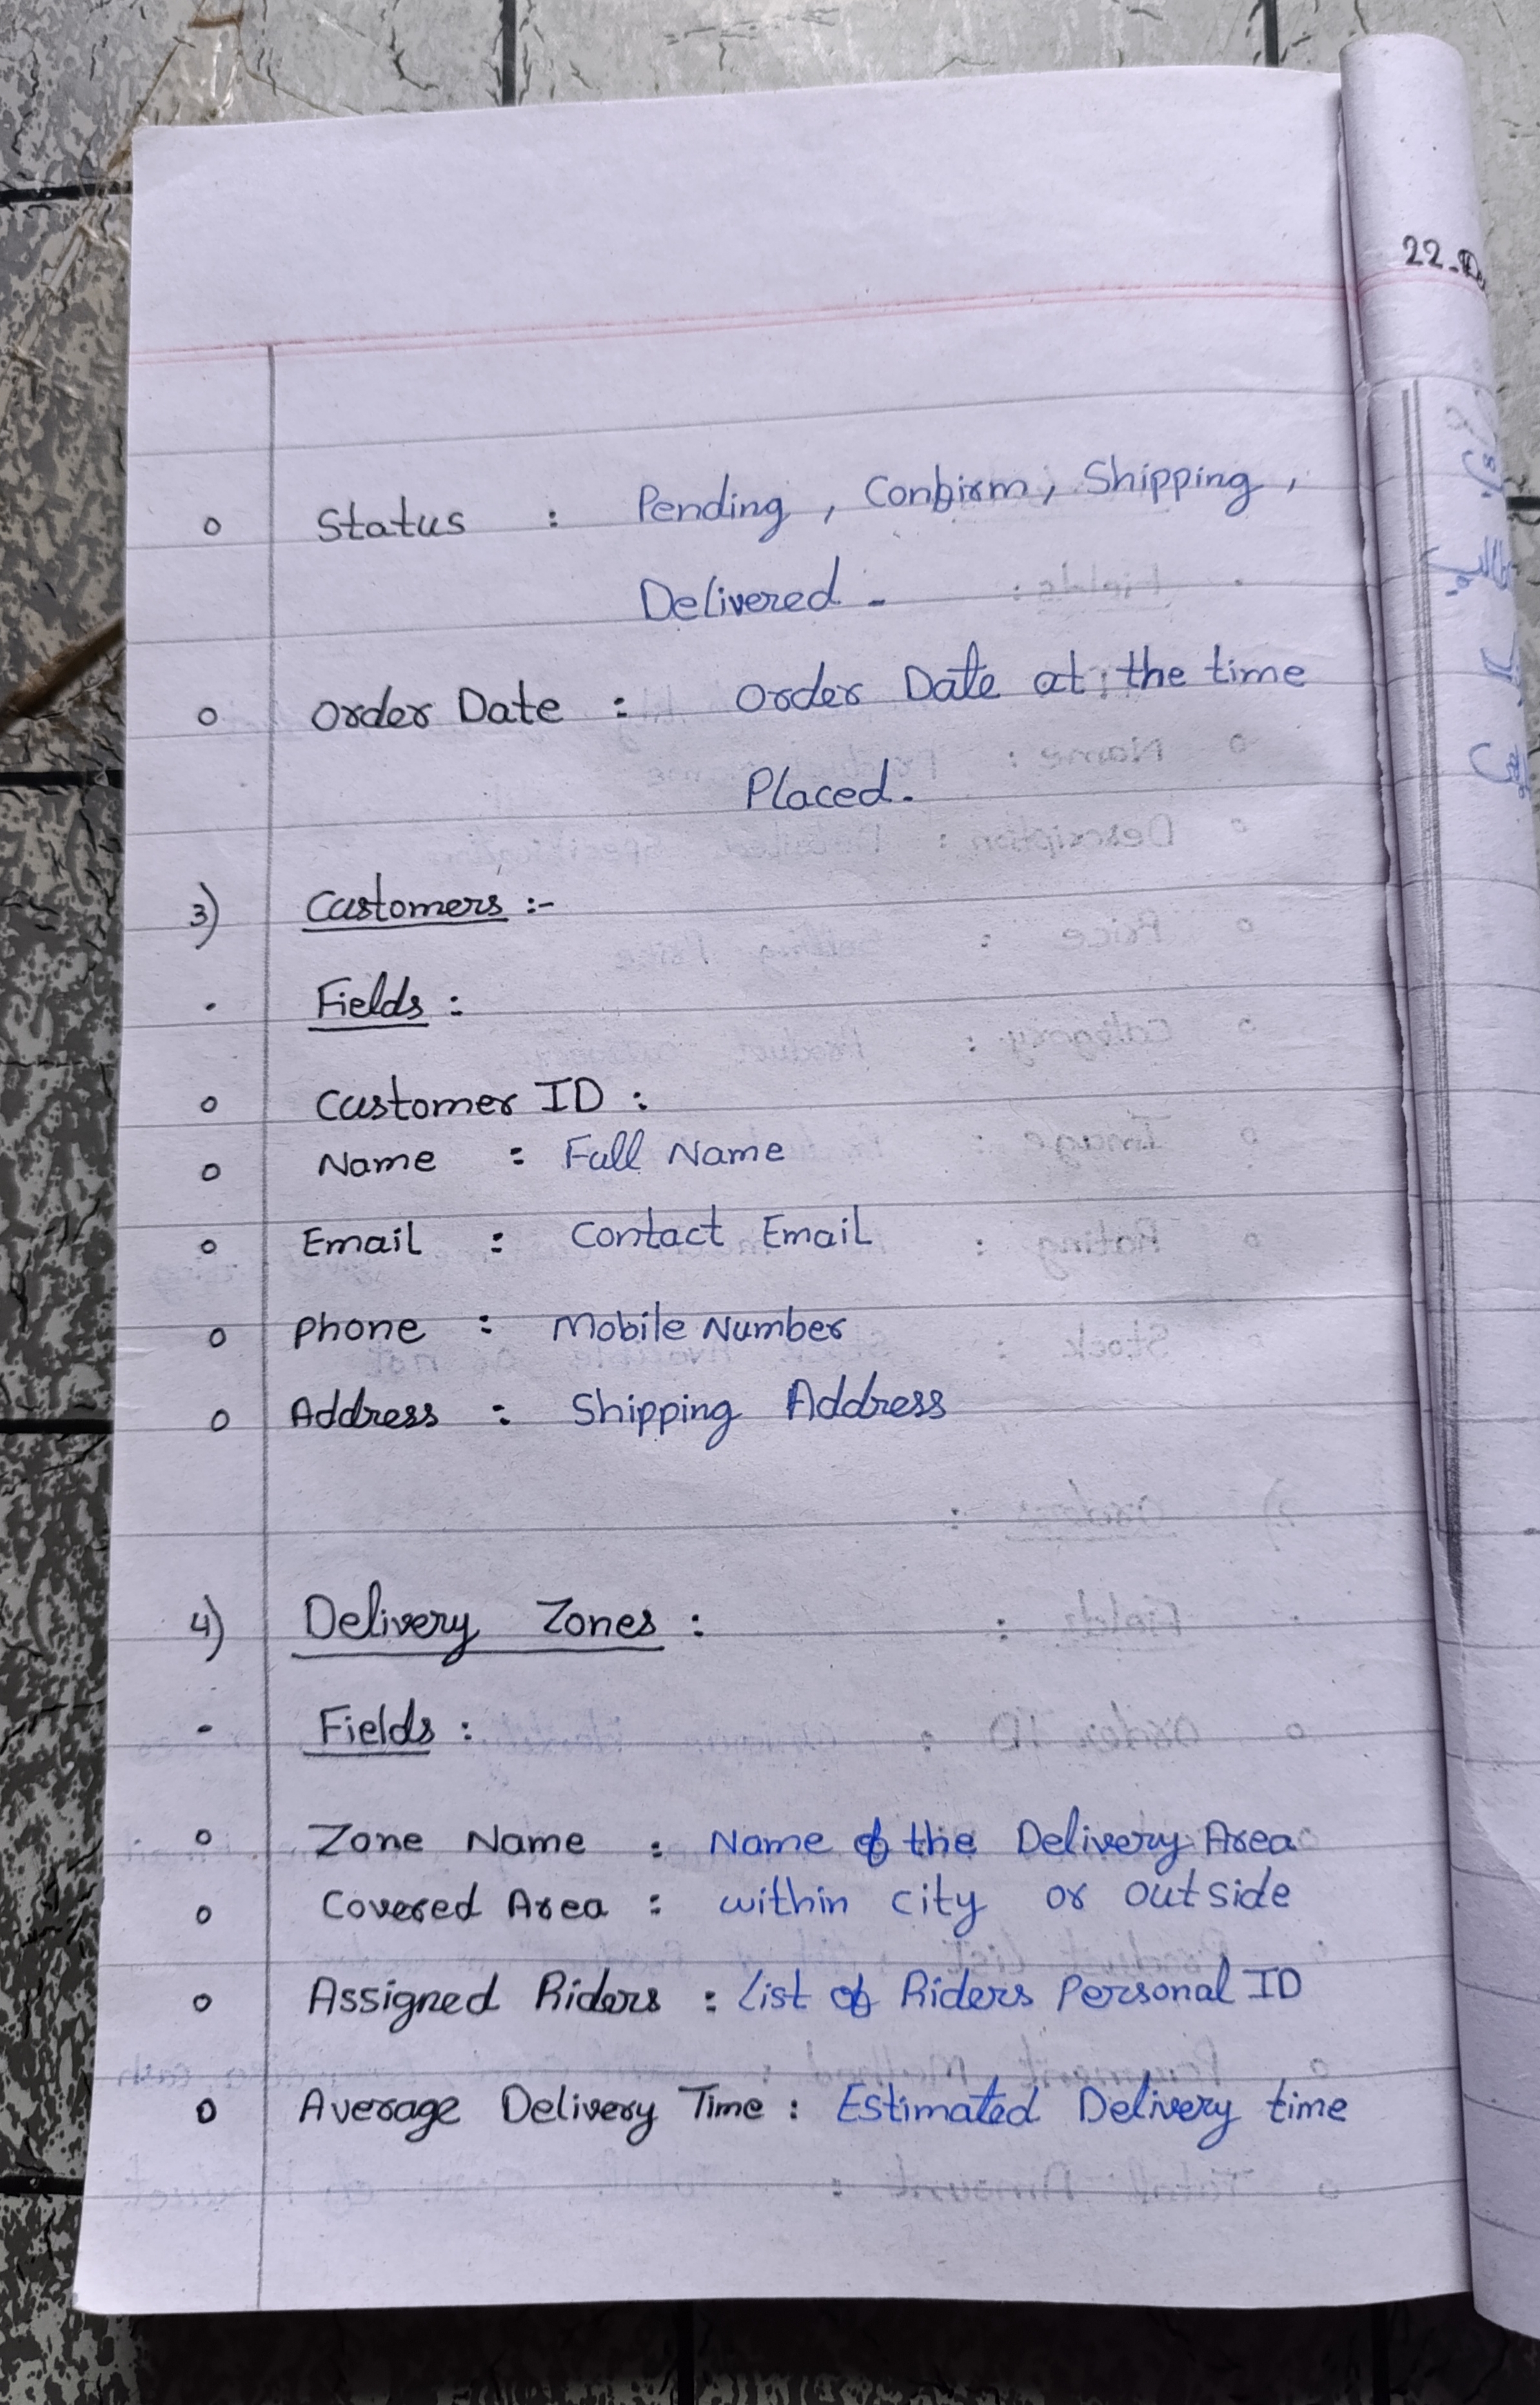 22-
Status : Pending , Confirm, Shipping ,
Delivered -
Order Date : Order Date at the time
Placed.
3) Customers :-
Fields :
Customer ID :
Name : Full Name
Email : Contact Email
Phone : Mobile Number
Address : Shipping Address
4) Delivery Zones :
- Fields :
Zone Name : Name of the Delivery Area
Covered Area : within city or outside
Assigned Riders : List of Riders Personal ID
Average Delivery Time : Estimated Delivery time